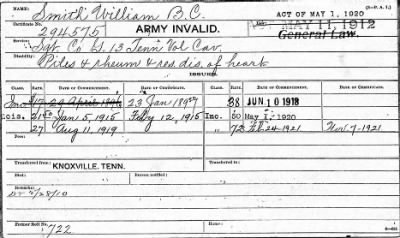 NAME: Smith William B. C. ACT OF MAY 1, 1920
CERTIFICATE NO. 294575 ARMY INVALID. MAY 11, 1912
General Law.
Service: Sgt. Co G. 13 Tenn Vol Cav.
Disability: Piles & rheum & res. dis. of heart
ISSUED.
CLASS. RATE. DATE OF COMMENCEMENT. DATE OF CERTIFICATE. CLASS. RATE. DATE OF COMMENCEMENT. DATE OF CERTIFICATE.
17 23 Jan 1897 38 JUN 10 1918
21 Jan 5, 1915 Feby 12, 1915 Inc. 50 May 1, 1920
27 Aug 11, 1919 " 72 Feb 24-1921 Nov. 7-1921
Transferred from Bureau notified: Transferred to
KNOXVILLE, TENN.
Remarks:
Former Roll No.
722